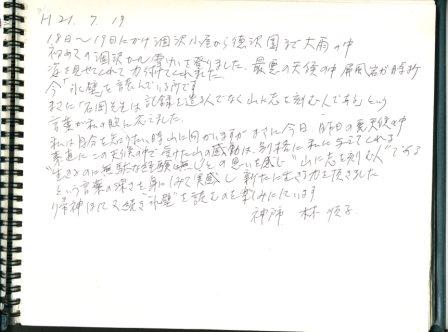 H21.7.19
18日〜19日にかけ涸沢小屋から徳沢園まで大雨の中
初めての涸沢から 登りました。最悪の天候の中 屏風岩が時折
姿を見せてくれて力術てくれました
今「氷壁」を読んでいる所です
故に「石岡先生は記録を造る人でなく山に志を刻む人である」という
言葉が私の胸に応えました。
私は自分を知りたい時 山に向かいますが まさに今日 昨日の悪天候の中
素直にこの天候の中で受けた山の感動は、別格に私に与えてくれる
"生きるのに無駄な経験は無し"との思いを感じ "山に志を刻む人"である
という言葉の深さを身にしみて実感し 新たに生きる力を頂きました
帰神して又続き"氷壁"を読むのを楽しみにしています
神 林 順子